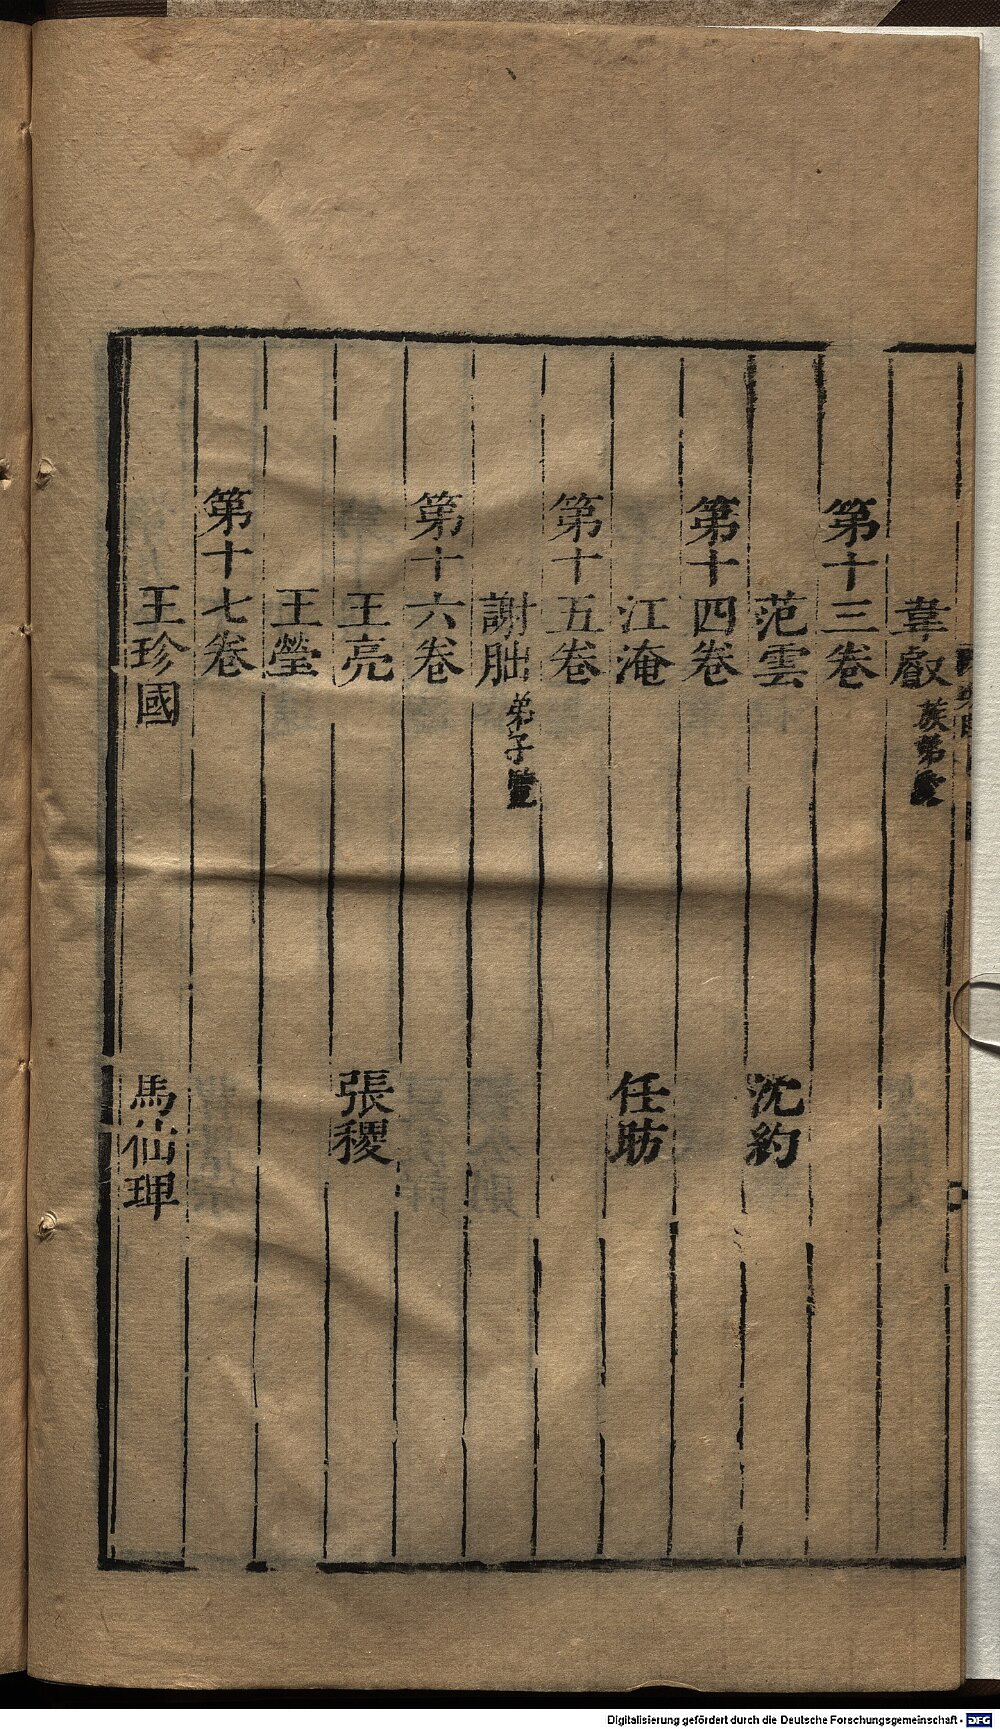 韋叡 族弟愛
第十三卷
范雲 沈約
第十四卷
江淹 任昉
第十五卷
謝朏 弟子覽
第十六卷
王亮 張稷
王瑩
第十七卷
王珍國 馬仙琕
Digitalisierung gefördert durch die Deutsche Forschungsgemeinschaft - DFG